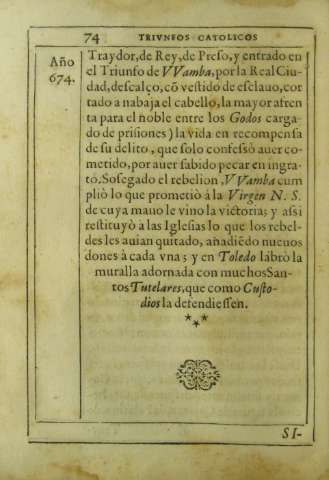 74 TRIVNFOS CATOLICOS
Año
674.
Traydor, de Rey, de Preso, y entrado en
el Triunfo de VVamba, por la Real Ciu-
dad, descalço, cõ vestido de esclauo, cor
tado a nabaja el cabello, la mayor afren
ta para el noble entre los Godos carga-
do de prisiones) la vida en recompensa
de su delito, que solo confessò auer co-
metido, por auer sabido pecar en ingra-
to. Sosegado el rebelion, VVamba cum
pliò lo que prometiò à la Virgen N. S.
de cuya mano le vino la victoria; y assi
restituyò a las Iglesias lo que los rebel-
des les auian quitado, añadiẽdo nueuos
dones à cada vna; y en Toledo labrò la
muralla adornada con muchos San-
tos Tutelares, que como Custo-
dios la defendiessen.
SI-